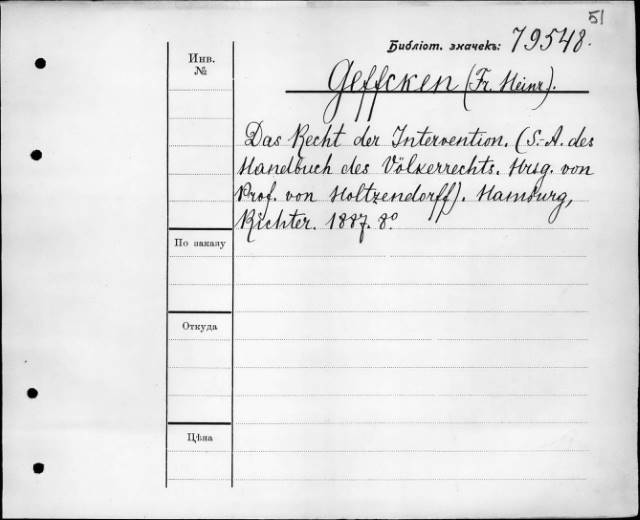 51
Библіот. значекъ: 79548.
Инв.
№
Geffcken (Fr. Heinr).
Das Recht der Intervention. (S.-A. des
Handbuch des Völkerrechts. Hrsg. von
Prof. von Holtzendorff). Hamburg,
Richter. 1887. 8º
По заказу
Откуда
Цѣна